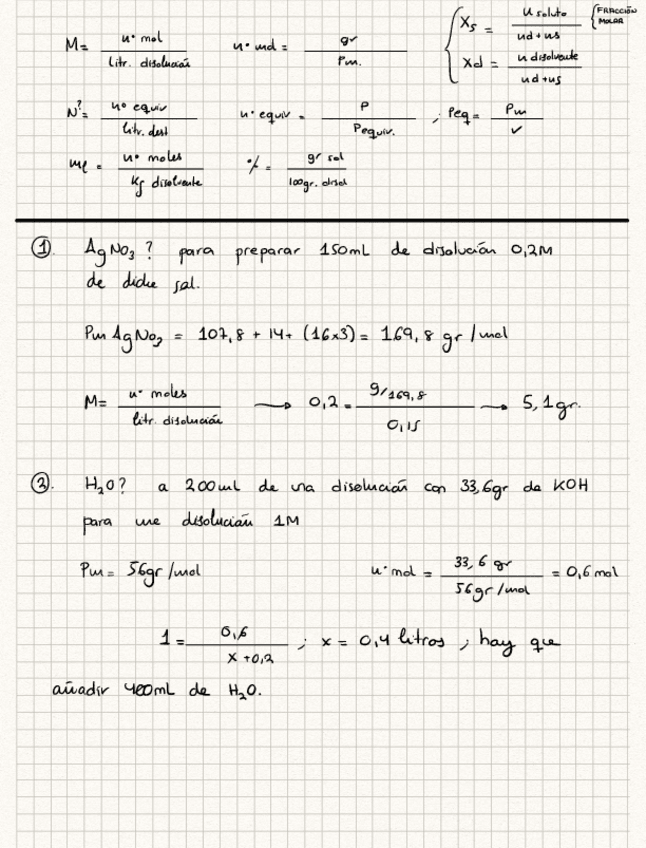 M = nº mol / litr. disolución    nº mol = gr / Pm.    { Xs = n soluto / nd + ns    { FRACCIÓN MOLAR
Xd = n disolvente / nd + ns
N? = nº equiv / litr. disol    nº equiv = P / Pequiv. ; Peq = Pm / v
ml = nº moles / Kg disolvente    % = gr sol / 100gr. disol
① AgNO3? para preparar 150mL de disolución 0,2M
de dicha sal.
Pm AgNO3 = 107,8 + 14 + (16x3) = 169,8 gr/mol
M = nº moles / litr. disolución → 0,2 = g/169,8 / 0,15 → 5,1gr.
②. H2O? a 200mL de una disolución con 33,6gr de KOH
para una disolución 1M
Pm = 56gr/mol    nº mol = 33,6 gr / 56gr/mol = 0,6 mol
1 = 0,6 / x + 0,2 ; x = 0,4 litros ; hay que
añadir 400mL de H2O.